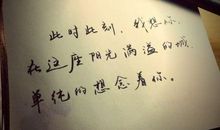 此时此刻，我想你，
在这座阳光满溢的城，
单纯的想念着你。